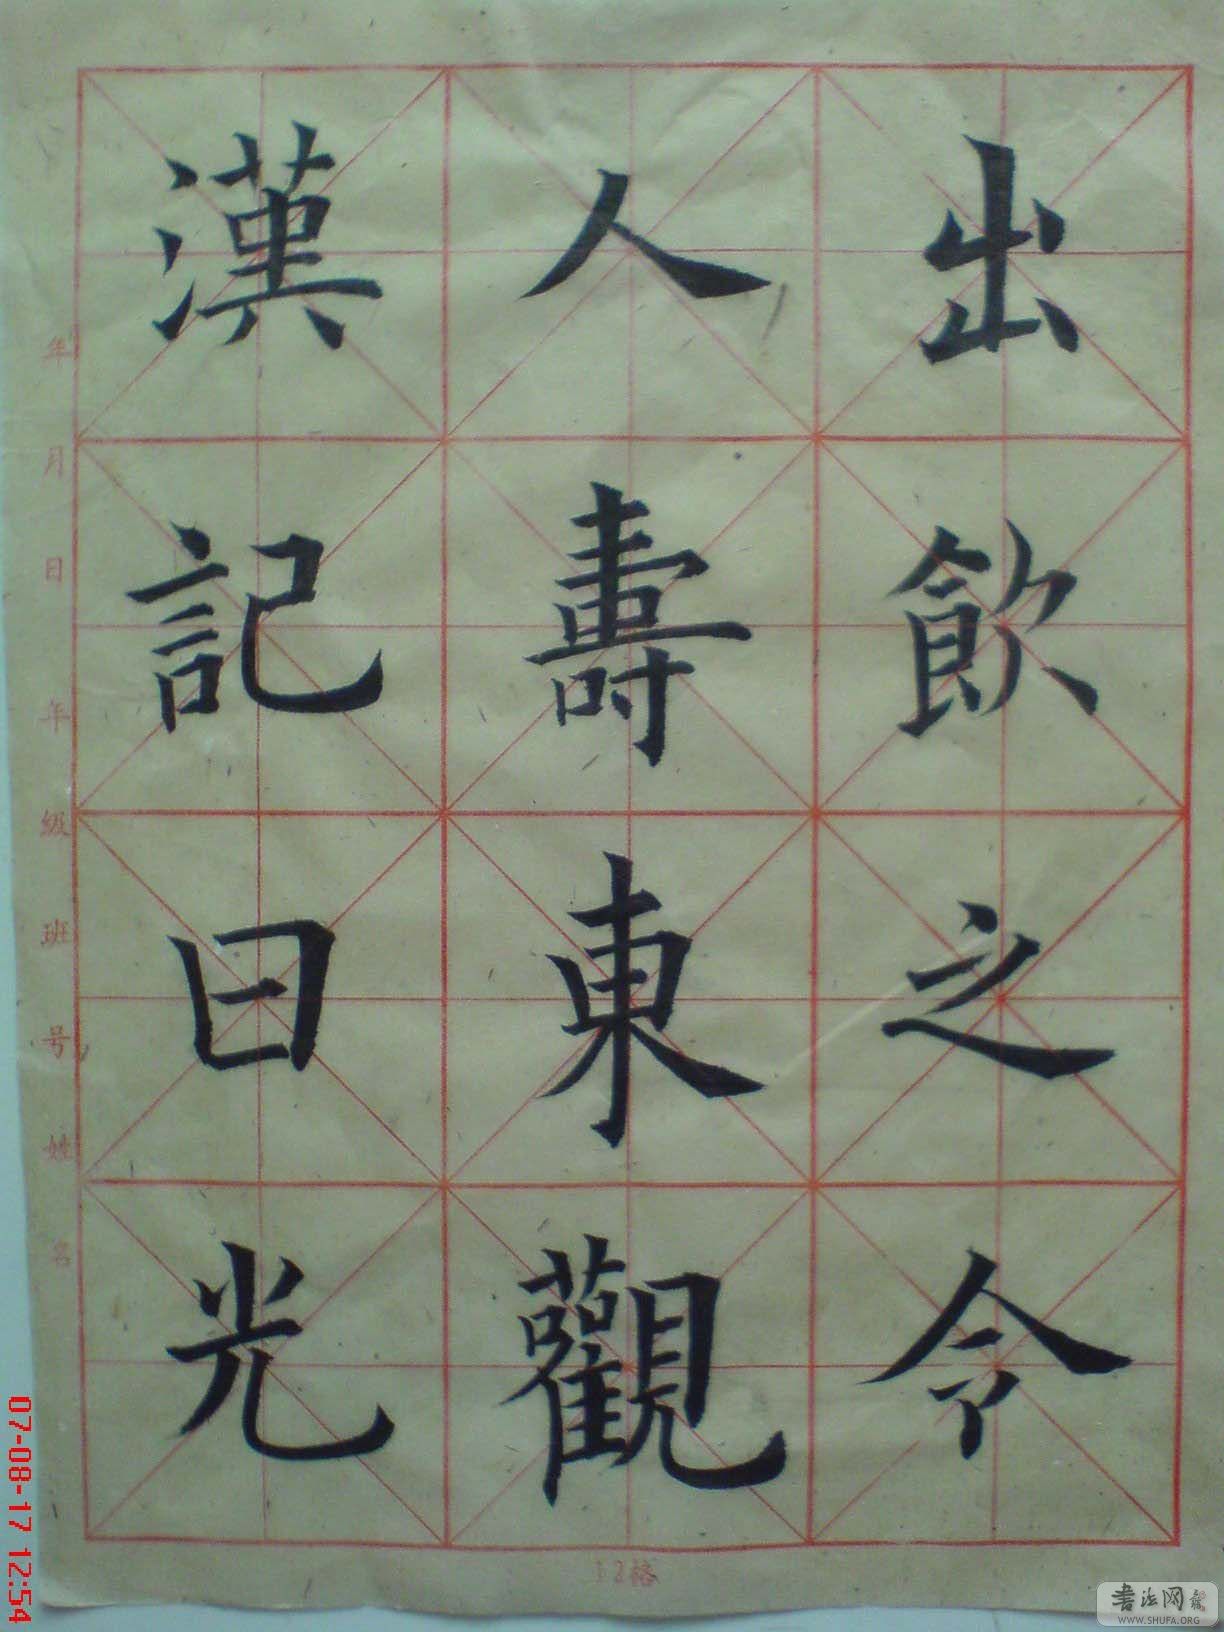 出飲之令
人壽東觀
漢記曰光
年 月 日 年 級 班 号 姓 名
12格
07-08-17 12:54
书法网
WWW.SHUFA.ORG